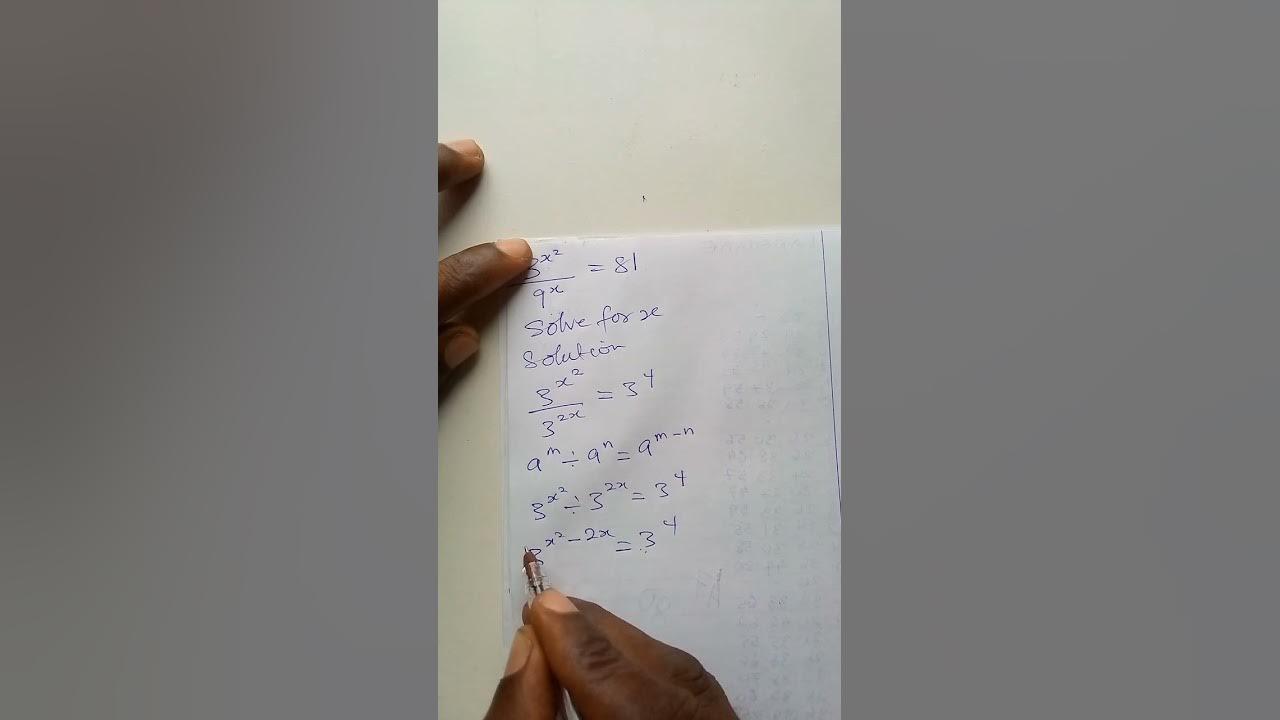 3^x² / 9^x = 81
Solve for x
Solution
3^x² / 3^2x = 3^4
a^m ÷ a^n = a^m-n
3^x² ÷ 3^2x = 3^4
3^x²-2x = 3^4